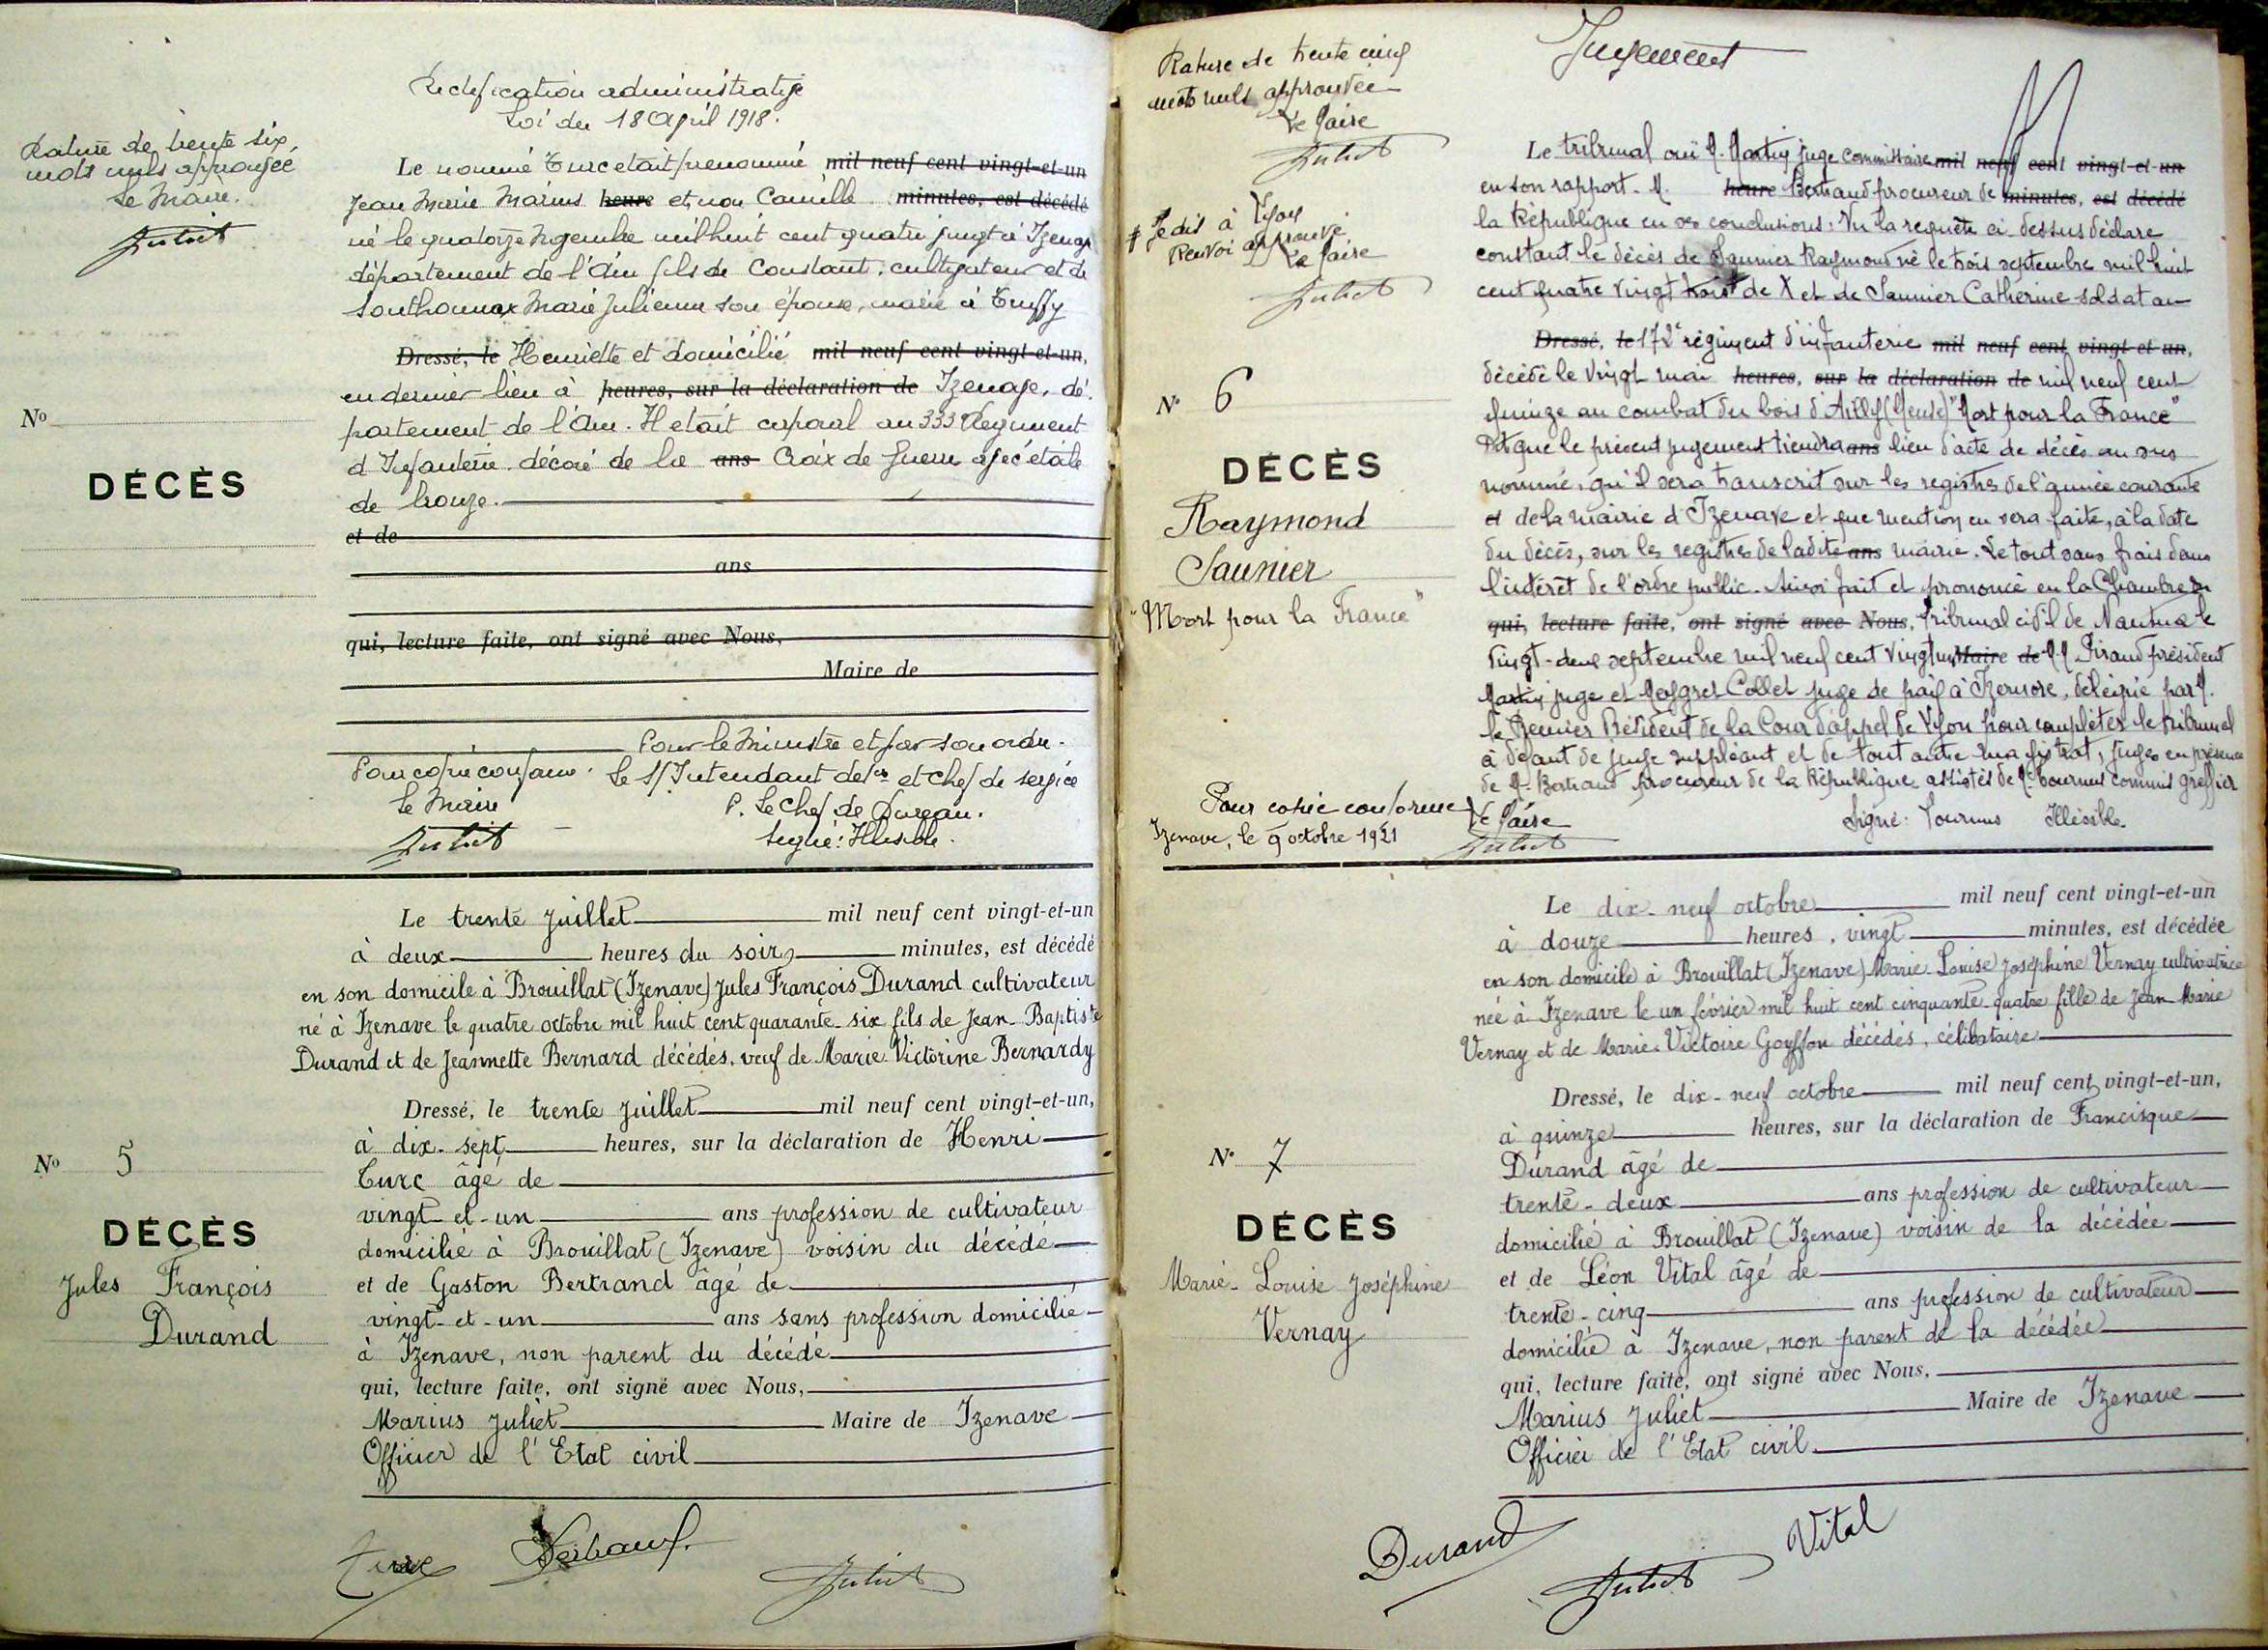 Rectification administrative
Loi du 18 April 1918.
Rature de trente six
mots nuls approuvée
Le Maire.
Juliet
Le nommé Turc etait prenommé mil neuf cent vingt-et-un
Jean Marie Marius heure et non Camille minutes, est décédé
né le quatorze Novembre mil huit cent quatre vingt à Izenave
département de l'Ain fils de Constant, cultivateur et de
Southonnax Marie Julienne son épouse, marié à Truffy
Dressé, le Henriette et domicilié mil neuf cent vingt-et-un,
en dernier lieu à heures, sur la déclaration de Izenave, dé-
partement de l'Ain. Il etait caporal au 333 Regiment
d'Infanterie. décoré de la ans Croix de Guerre avec étoile
de bronze.
et de
ans
qui, lecture faite, ont signé avec Nous,
Maire de
No
DÉCÈS
Pour le Ministre et par son ordre.
Pour copie conforme. Le S/Intendant et Chef de service
Le Maire P. Le Chef de Bureau.
Juliet Signé: Illisible.
Le trente Juillet mil neuf cent vingt-et-un
à deux heures du soir minutes, est décédé
en son domicile à Brouillat (Izenave) Jules François Durand cultivateur
né à Izenave le quatre octobre mil huit cent quarante-six fils de Jean-Baptiste
Durand et de Jeannette Bernard décédés, veuf de Marie-Victorine Bernardy
Dressé, le trente Juillet mil neuf cent vingt-et-un,
à dix-sept heures, sur la déclaration de Henri
Turc âgé de
vingt-et-un ans profession de cultivateur
domicilié à Brouillat (Izenave) voisin du décédé
et de Gaston Bertrand âgé de
vingt-et-un ans sans profession domicilié
à Izenave, non parent du décédé
qui, lecture faite, ont signé avec Nous,
Marius Juliet Maire de Izenave
Officier de l'Etat civil
No 5
DÉCÈS
Jules François
Durand
Turc Bertrand Juliet
Jugement
Rature de trente cinq
mots nuls approuvée
Le Maire
Juliet
Je dis à Lyon
Renvoi approuvé
Le Maire
Juliet
Le tribunal ouï M. Martin juge commissaire mil neuf cent vingt-et-un
en son rapport. M. heure Bertrand procureur de minutes, est décédé
la République en ses conclusions: Vu la requête ci dessus déclare
constant le décès de Saunier Raymond né le trois septembre mil huit
cent quatre vingt trois de X et de Saunier Catherine soldat au
Dressé, le 172e régiment d'infanterie mil neuf cent vingt-et-un,
décédé le vingt mai heures, sur la déclaration de mil neuf cent
quinze au combat du bois d'Ailly (Meuse) "Mort pour la France"
Dit que le présent jugement tiendra ans lieu d'acte de décès au sus
nommé, qu'il sera transcrit sur les registres de l'année courante
et de la mairie d'Izenave et que mention en sera faite, à la date
du décès, sur les registres de ladite ans mairie. Le tout sans frais dans
l'intérêt de l'ordre public. Ainsi fait et prononcé en la Chambre du
qui, lecture faite, ont signé avec Nous, tribunal civil de Nantua le
vingt-deux septembre mil neuf cent vingt un Maire de MM Piraud président
Martin juge et Collet juge de paix à Izernore, délégué par M.
le Premier Président de la Cour d'appel de Lyon pour compléter le tribunal
à défaut de juge suppléant et de tout autre magistrat, juges en présence
de M. Bertrand procureur de la République assistés de M. Tournus commis greffier
Signé: Tournus Illisible.
N° 6
DÉCÈS
Raymond
Saunier
"Mort pour la France"
Pour copie conforme Le Maire
Izenave, le 9 octobre 1921 Juliet
Le dix-neuf octobre mil neuf cent vingt-et-un
à douze heures, vingt minutes, est décédée
en son domicile à Brouillat (Izenave) Marie-Louise Joséphine Vernay cultivatrice
née à Izenave le un février mil huit cent cinquante-quatre fille de Jean-Marie
Vernay et de Marie-Victoire Goyffon décédés, célibataire
Dressé, le dix-neuf octobre mil neuf cent vingt-et-un,
à quinze heures, sur la déclaration de Francisque
Durand âgé de
trente-deux ans profession de cultivateur
domicilié à Brouillat (Izenave) voisin de la décédée
et de Léon Vital âgé de
trente-cinq ans profession de cultivateur
domicilié à Izenave, non parent de la décédée
qui, lecture faite, ont signé avec Nous,
Marius Juliet Maire de Izenave
Officier de l'Etat civil
N° 7
DÉCÈS
Marie-Louise Joséphine
Vernay
Durand Juliet Vital